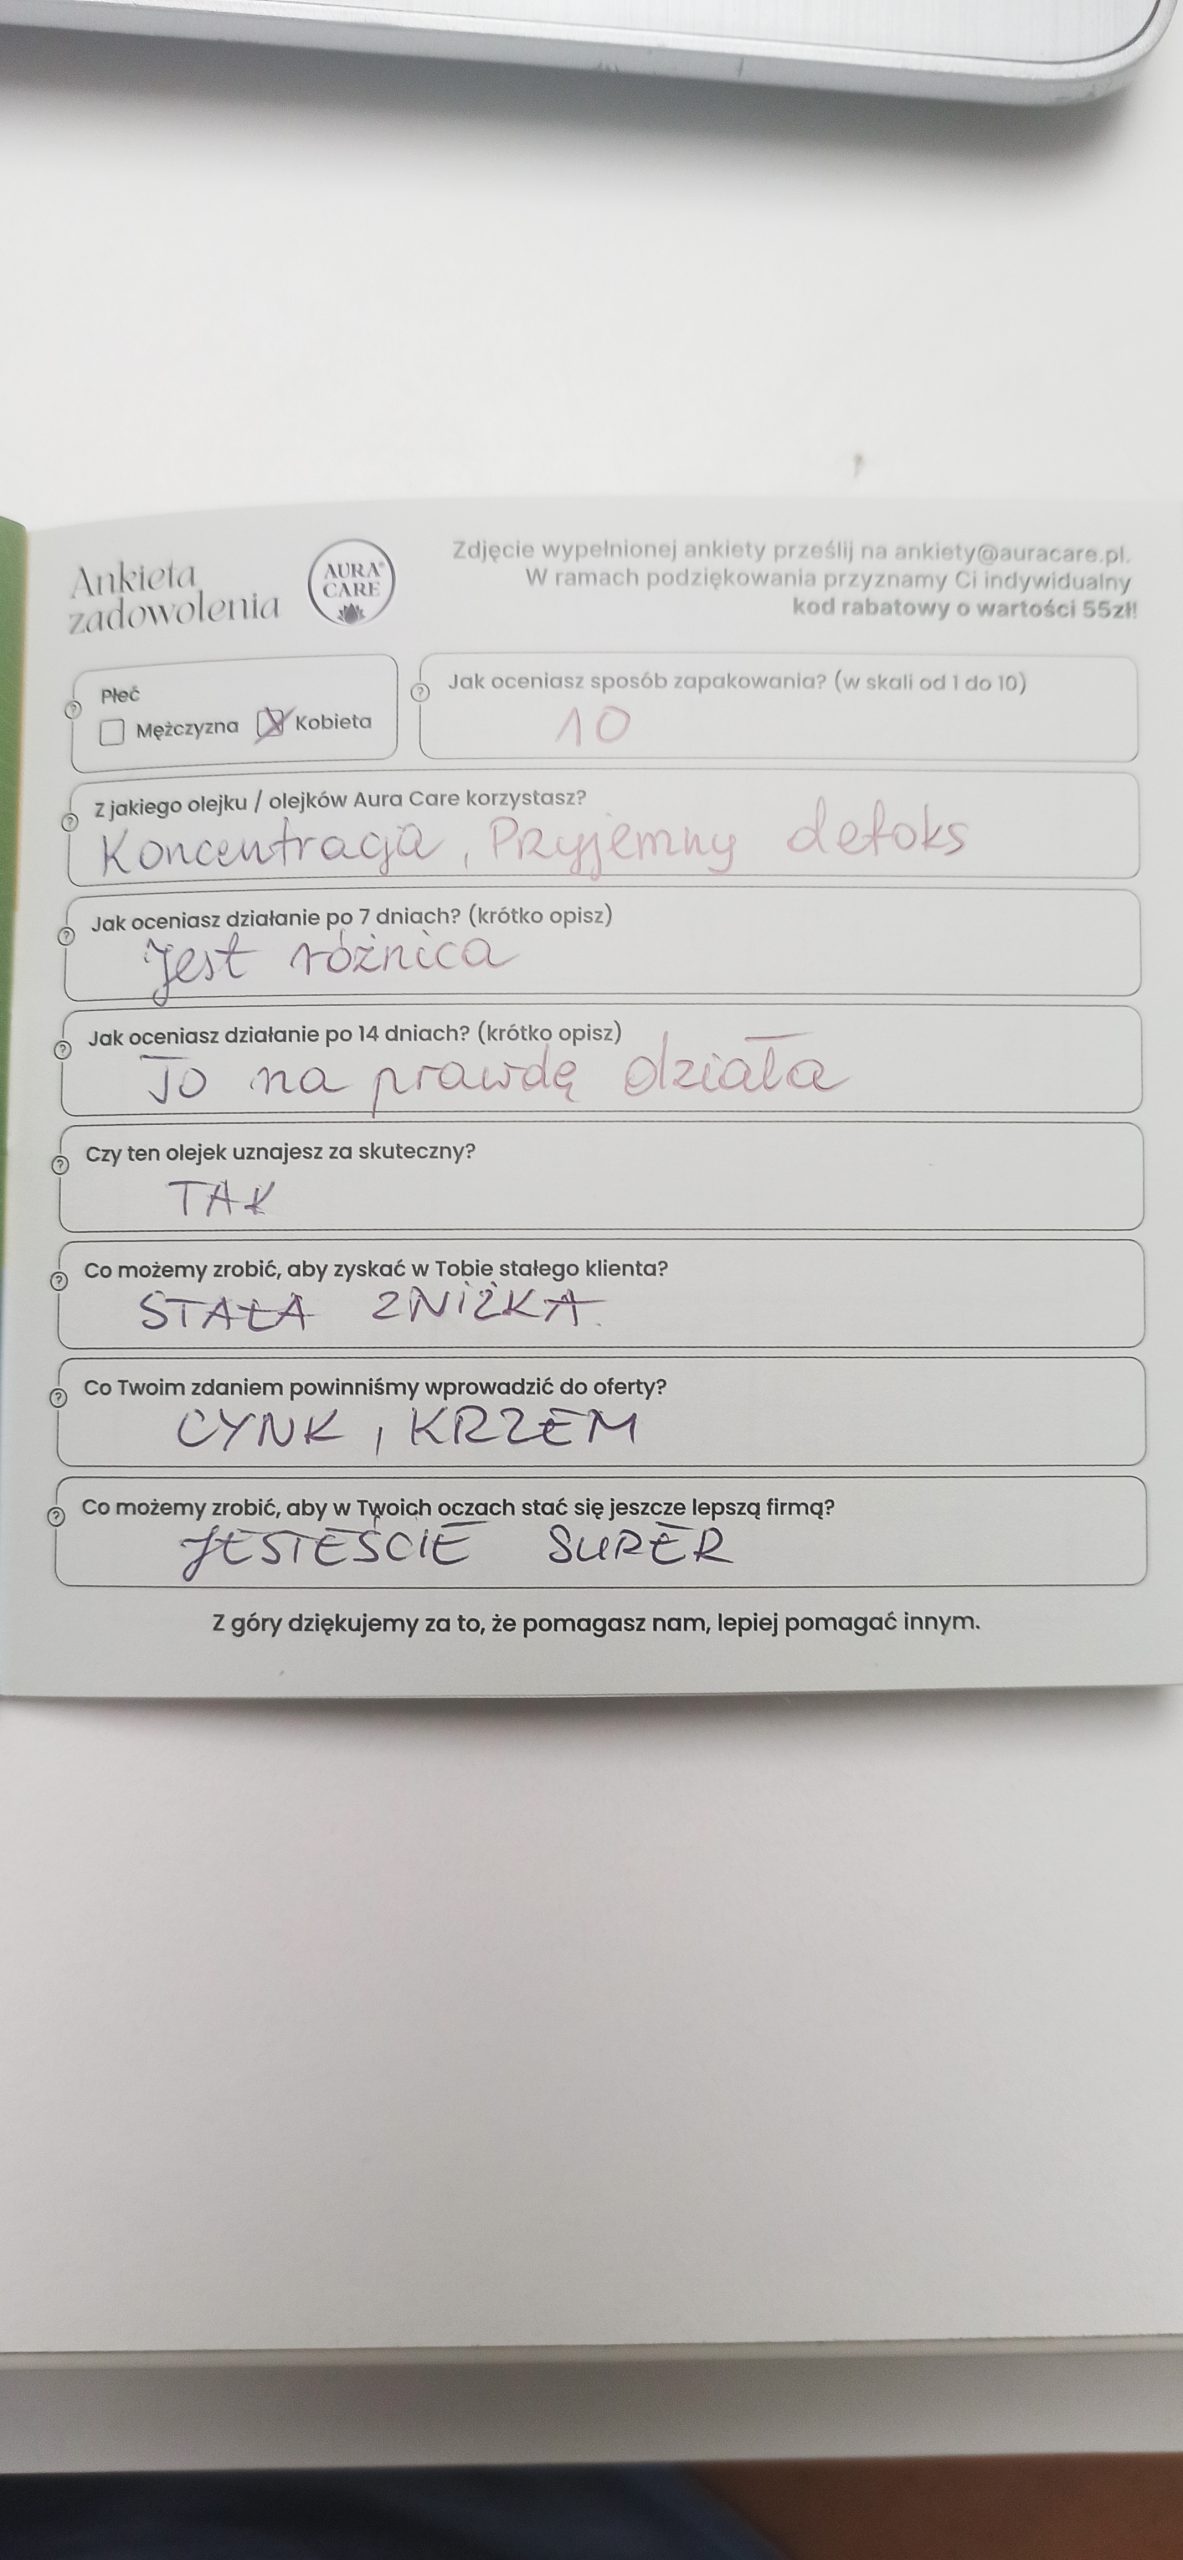 Ankieta
zadowolenia
AURA®
CARE
Zdjęcie wypełnionej ankiety prześlij na ankiety@auracare.pl.
W ramach podziękowania przyznamy Ci indywidualny
kod rabatowy o wartości 55zł!
Płeć
Mężczyzna Kobieta
Jak oceniasz sposób zapakowania? (w skali od 1 do 10)
10
Z jakiego olejku / olejków Aura Care korzystasz?
Koncentracja, Przyjemny detoks
Jak oceniasz działanie po 7 dniach? (krótko opisz)
Jest różnica
Jak oceniasz działanie po 14 dniach? (krótko opisz)
To na prawdę działa
Czy ten olejek uznajesz za skuteczny?
TAK
Co możemy zrobić, aby zyskać w Tobie stałego klienta?
STAŁA ZNIŻKA.
Co Twoim zdaniem powinniśmy wprowadzić do oferty?
CYNK, KRZEM
Co możemy zrobić, aby w Twoich oczach stać się jeszcze lepszą firmą?
JESTEŚCIE SUPER
Z góry dziękujemy za to, że pomagasz nam, lepiej pomagać innym.